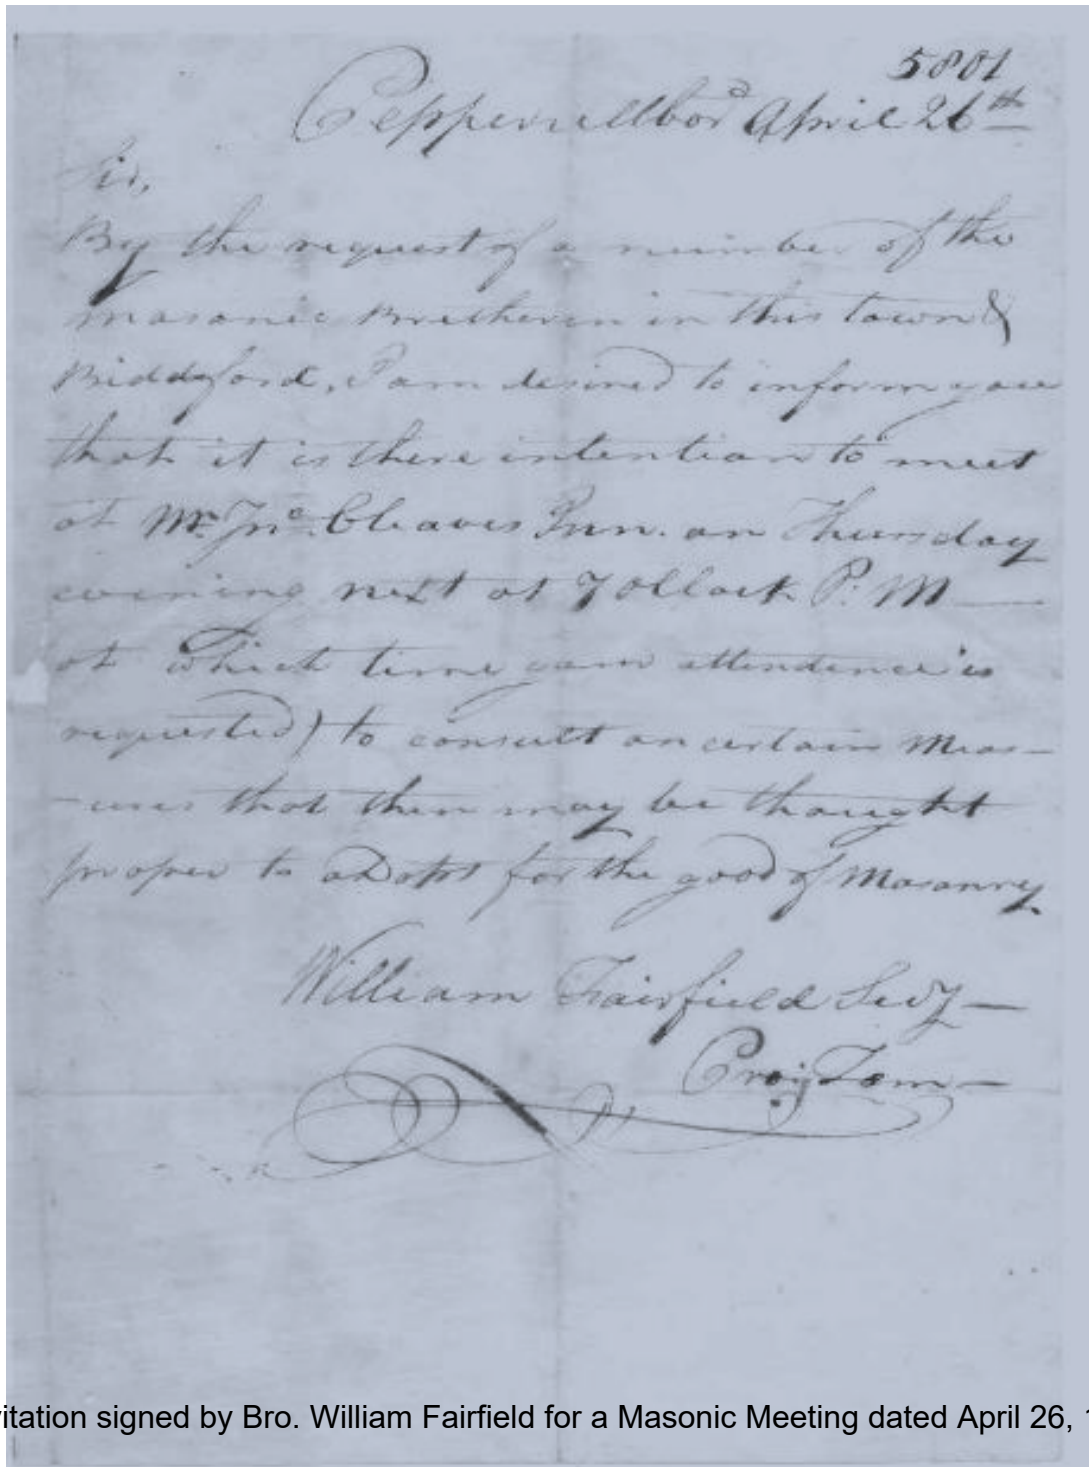 5801
Pepperrellboro April 26th
Sir,
By the request of a number of the
masonic Bretheren in this town &
Biddeford, I am desired to inform you
that it is there intention to meet
at Mr. Jno. Cleaves Inn. on Thursday
evening next at 7 oClock P: M
at which time your attendence is
requested) to consult on certain Meas-
-ures that then may be thought
proper to adopt for the good of Masonry
William Fairfield Secy
Tem
vitation signed by Bro. William Fairfield for a Masonic Meeting dated April 26,